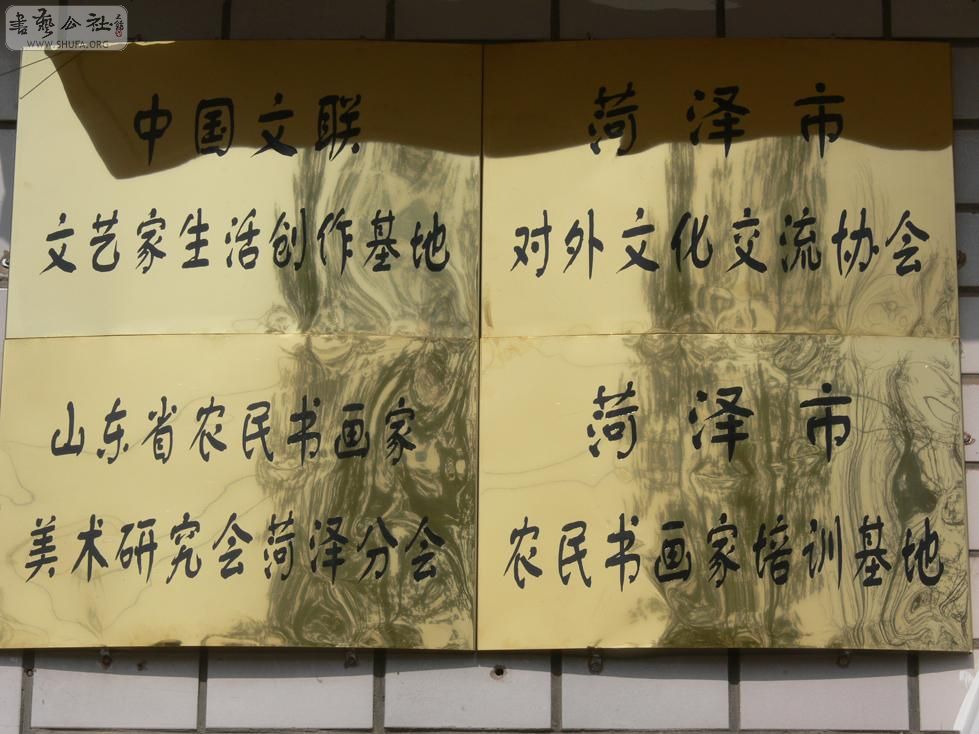 書藝公社
WWW.SHUFA.ORG
中国文联
文艺家生活创作基地
菏泽市
对外文化交流协会
山东省农民书画家
美术研究会菏泽分会
菏泽市
农民书画家培训基地